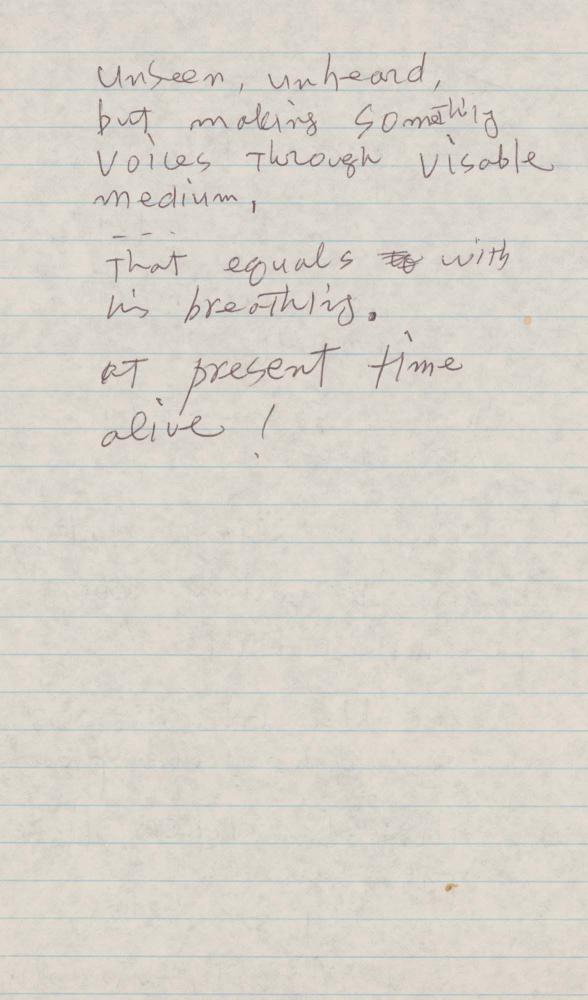 unseen, unheard,
but making something
voices Through visable
medium,
- - -
That equals with
his breathing.
at present time
alive !